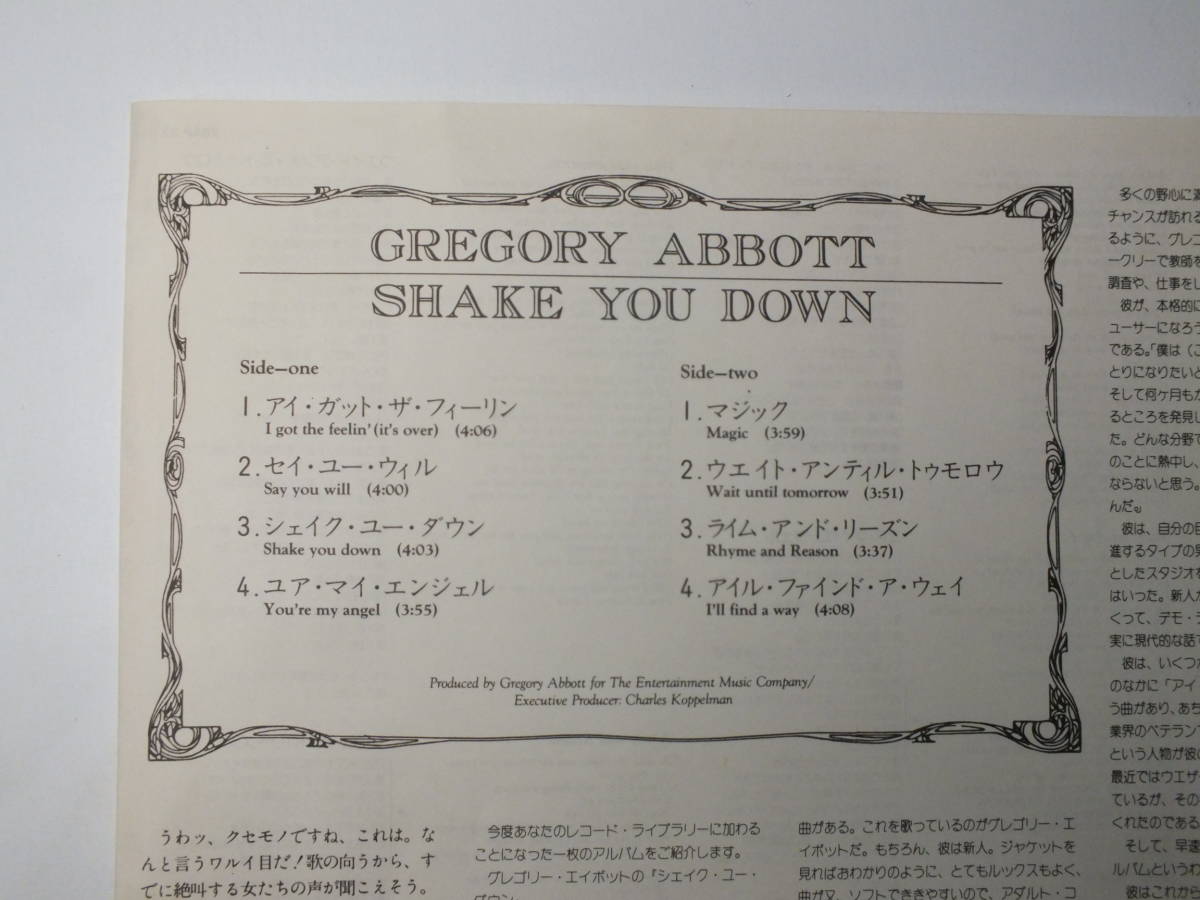 GREGORY ABBOTT
SHAKE YOU DOWN
Side—one
1.アイ・ガット・ザ・フィーリン
I got the feelin' (it's over) (4:06)
2.セイ・ユー・ウィル
Say you will (4:00)
3.シェイク・ユー・ダウン
Shake you down (4:03)
4.ユア・マイ・エンジェル
You're my angel (3:55)
Side—two
1.マジック
Magic (3:59)
2.ウエイト・アンティル・トゥモロウ
Wait until tomorrow (3:51)
3.ライム・アンド・リーズン
Rhyme and Reason (3:37)
4.アイル・ファインド・ア・ウェイ
I'll find a way (4:08)
Produced by Gregory Abbott for The Entertainment Music Company/
Executive Producer: Charles Koppelman
うわッ、クセモノですね、これは。な
んと言うワルイ目だ!歌の向うから、す
でに絶叫する女たちの声が聞こえそう。
今度あなたのレコード・ライブラリーに加わる
ことになった一枚のアルバムをご紹介します。
グレゴリー・エイボットの『シェイク・ユー・
ダウン
曲がある。これを歌っているのがグレゴリー・エ
イボットだ。もちろん、彼は新人。ジャケットを
見ればおわかりのように、とてもルックスもよく、
曲が又、ソフトでききやすいので、アダルト・コ
多くの野心に
チャンスが訪れる
るように、グレコ
ークリーで教師を
調査や、仕事をし
彼が、本格的に
ユーサーになろう
である。「僕は(こ
とりになりたいと
そして何ヶ月もか
るところを発見し
た。どんな分野で
のことに熱中し、
ならないと思う。
んだ。』
彼は、自分の目
進するタイプの男
としたスタジオを
はいった。新人が
くって、デモ・テ
実に現代的な話で
彼は、いくつか
のなかに「アイ
う曲があり、あち
業界のベテランで
という人物が彼の
最近ではウエザ
ているが、その
くれたのである
そして、早速
ルバムというわ
彼はこれから